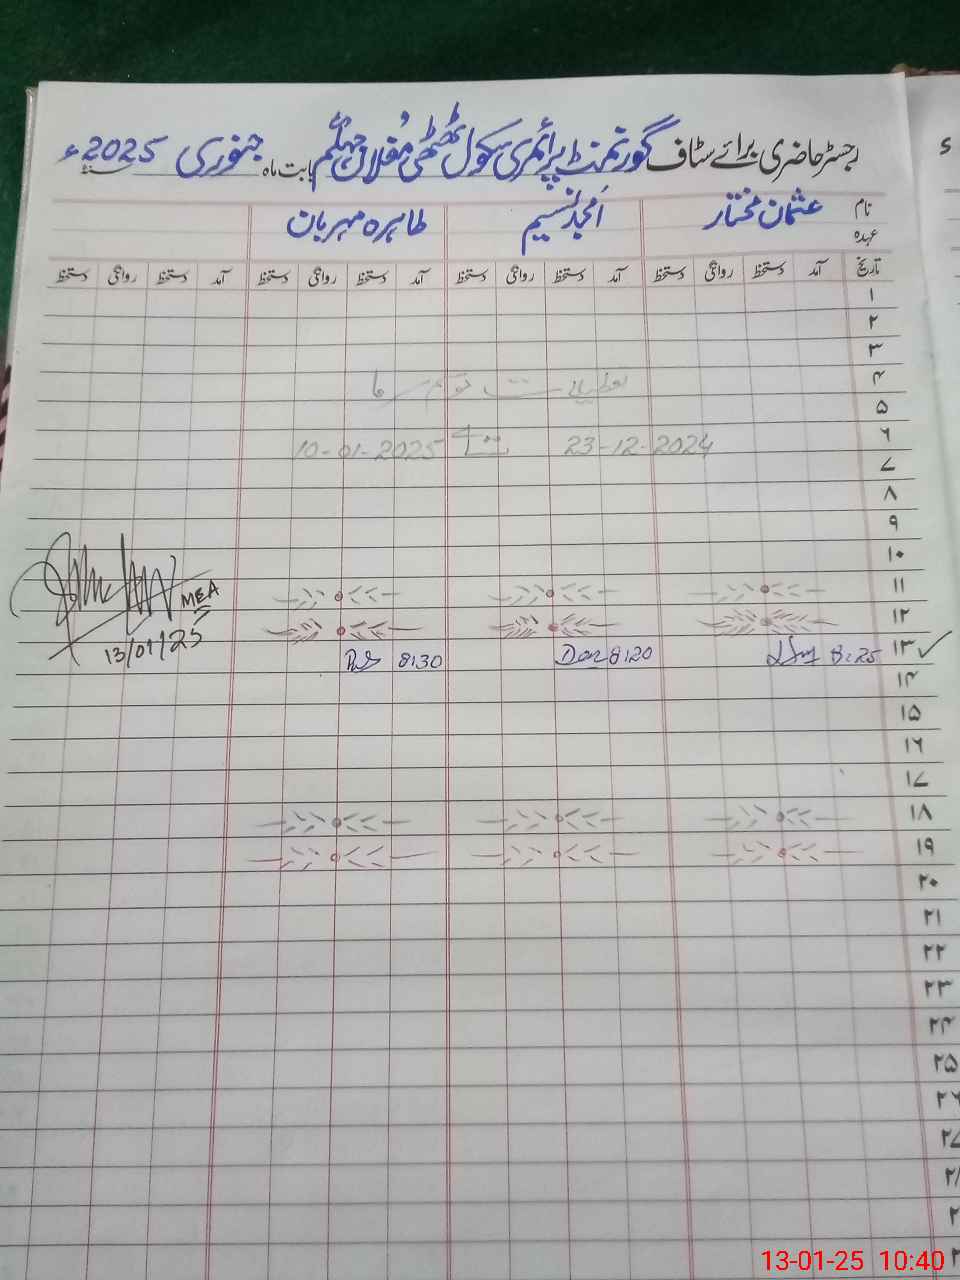 رجسٹر حاضری برائے سٹاف گورنمنٹ پرائمری سکول ٹھٹھی مغلاں جہلم بابت ماہ جنوری 2025ء
نام عثمان مختار امجد نسیم طاہرہ مہربان
عہدہ
تاریخ آمد دستخط روانگی دستخط آمد دستخط روانگی دستخط آمد دستخط روانگی دستخط آمد دستخط روانگی دستخط
۱
۲
۳
۴ تعطیلات موسم سرما
۵
۶ 23-12-2024 تا 10-01-2025
۷
۸
۹
۱۰
۱۱
۱۲
MEA
13/01/25
۱۳ ✓ 8:25 8:20 8:30
۱۴
۱۵
۱۶
۱۷
۱۸
۱۹
۲۰
۲۱
۲۲
۲۳
۲۴
۲۵
۲۶
۲۷
13-01-25 10:40